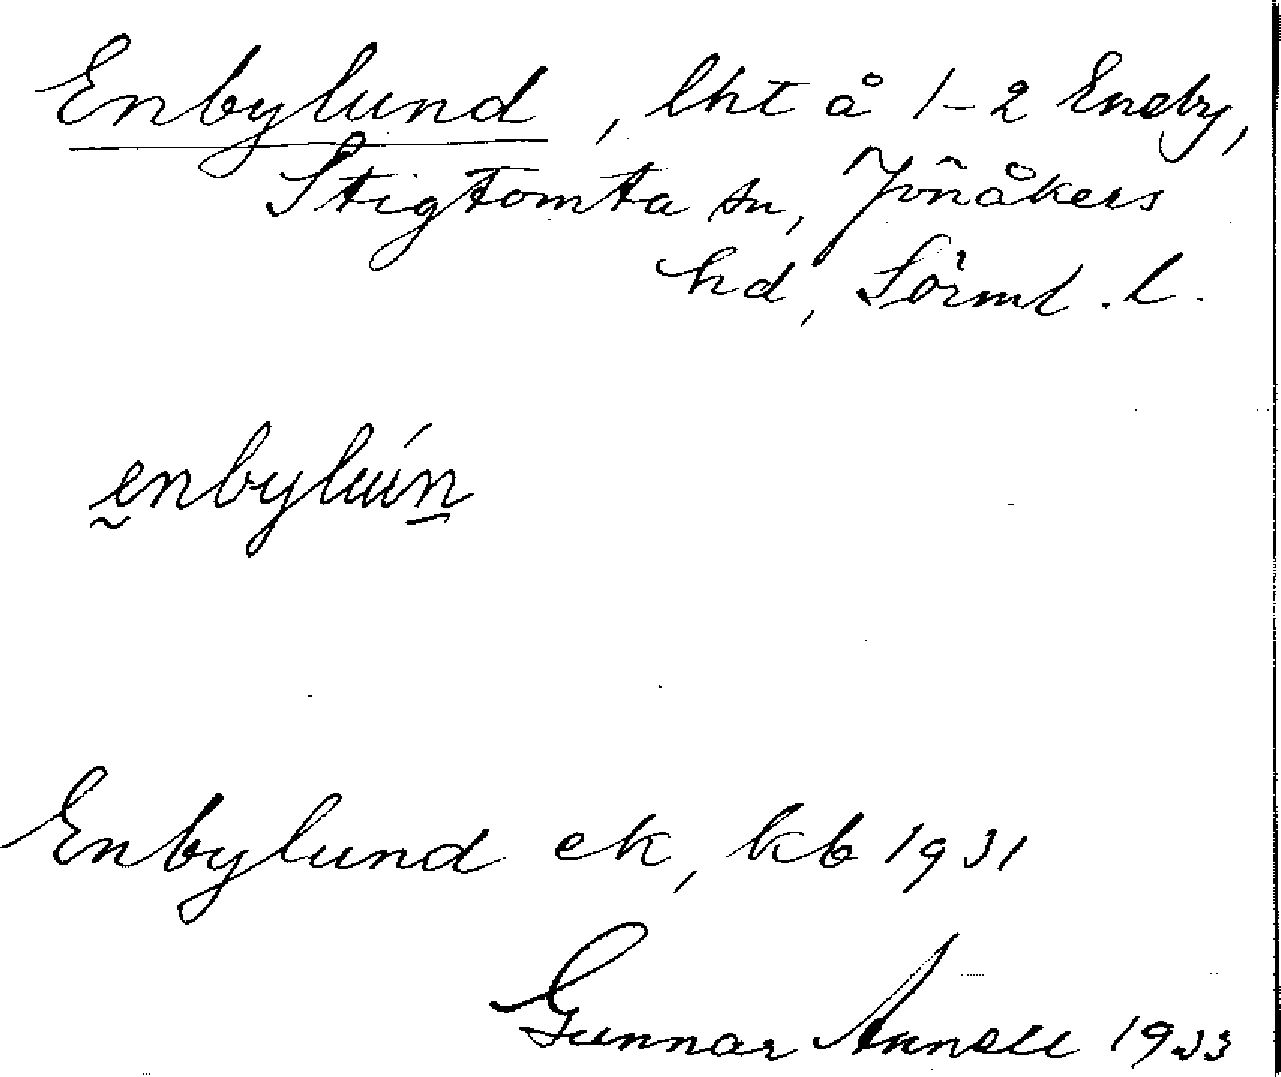 Enbylund, lht å 1-2 Eneby,
Stigtomta sn, Jönåkers
hd, Sörml. l.
enbylún
Enbylund ek, kb 1931
Gunnar Annell 1933